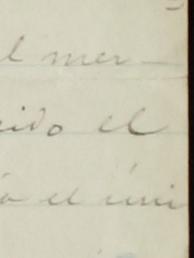 l mer-
ido el
a el úni